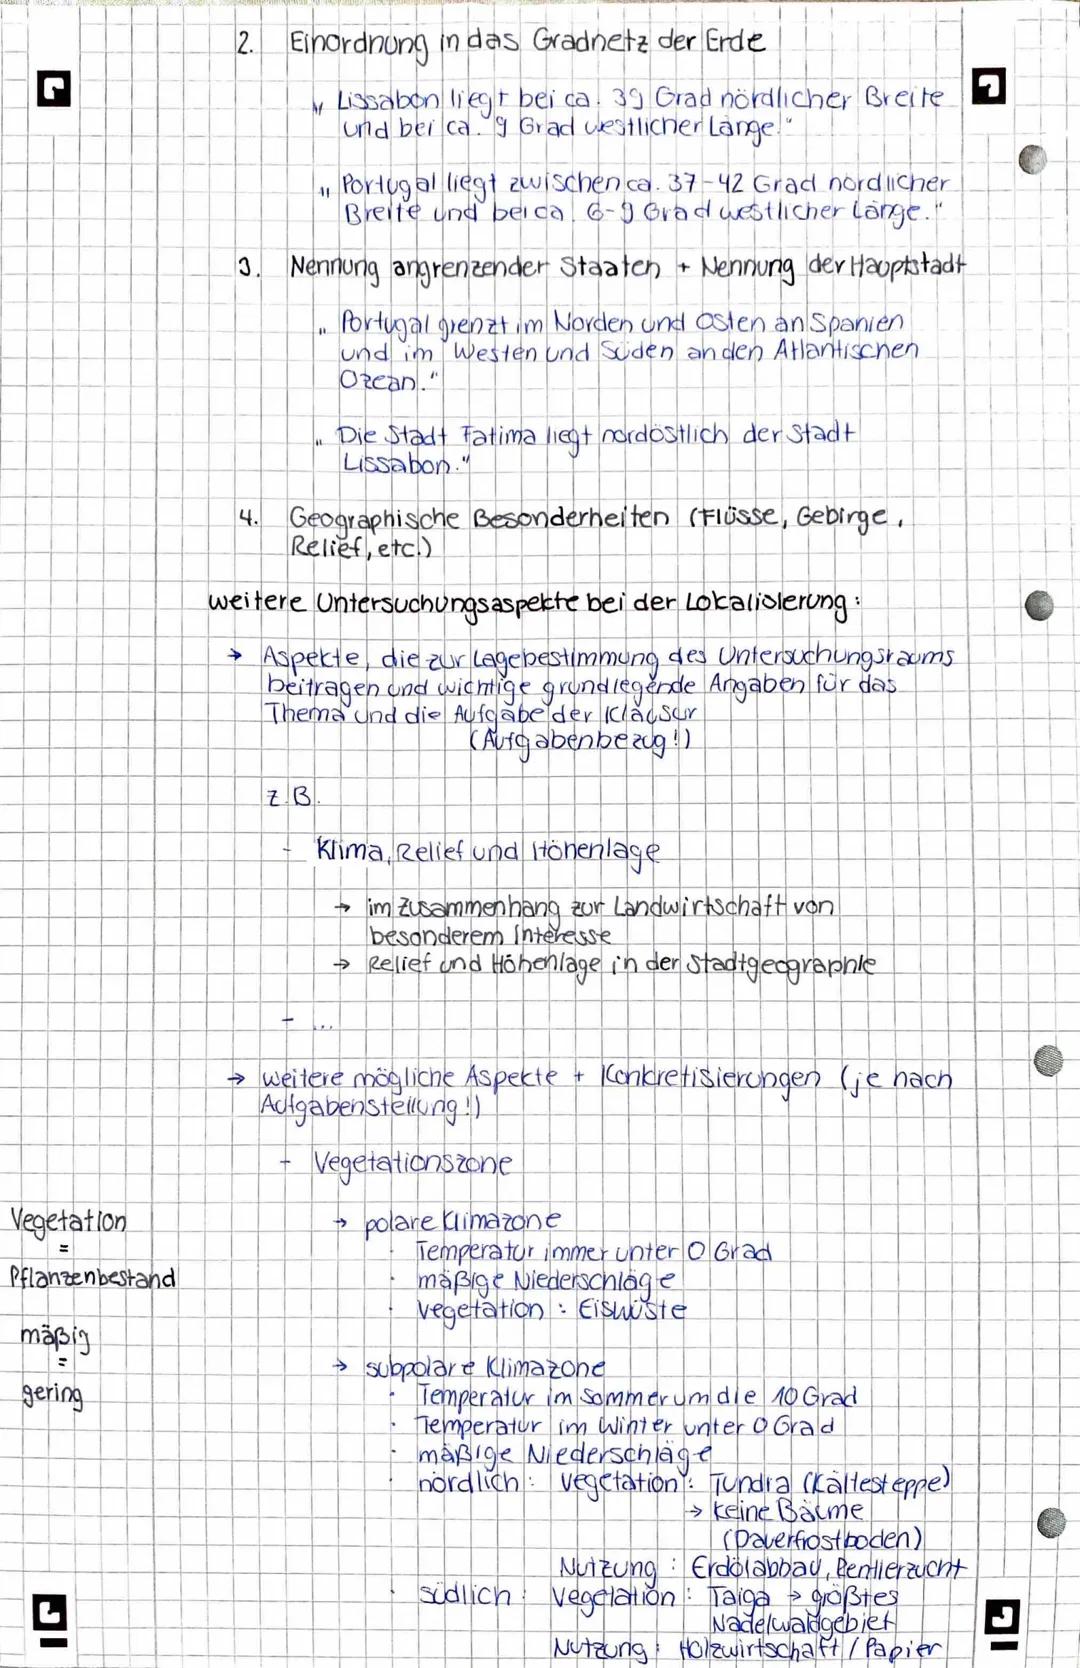 2. Einordnung in das Gradnetz der Erde
„ Lissabon liegt bei ca. 39 Grad nördlicher Breite
und bei ca. 9 Grad westlicher Länge."
„ Portugal liegt zwischen ca. 37-42 Grad nördlicher
Breite und bei ca. 6-9 Grad westlicher Länge."
3. Nennung angrenzender Staaten + Nennung der Hauptstadt
„ Portugal grenzt im Norden und Osten an Spanien
und im Westen und Süden an den Atlantischen
Ozean."
„ Die Stadt Fatima liegt nordöstlich der Stadt
Lissabon."
4. Geographische Besonderheiten (Flüsse, Gebirge,
Relief, etc.)
weitere Untersuchungsaspekte bei der Lokalisierung:
→ Aspekte, die zur Lagebestimmung des Untersuchungsraums
beitragen und wichtige grundlegende Angaben für das
Thema und die Aufgabe der Klausur
(Aufgabenbezug!)
z.B.
- Klima, Relief und Höhenlage
→ im Zusammenhang zur Landwirtschaft von
besonderem Interesse
→ Relief und Höhenlage in der Stadtgeographie
- ...
→ weitere mögliche Aspekte + Konkretisierungen (je nach
Aufgabenstellung!)
- Vegetationszone
Vegetation
=
Pflanzenbestand
mäßig
=
gering
→ polare Klimazone
· Temperatur immer unter 0 Grad
· mäßige Niederschläge
· Vegetation: Eiswüste
→ subpolare Klimazone
· Temperatur im Sommer um die 10 Grad
· Temperatur im Winter unter 0 Grad
· mäßige Niederschläge
· nördlich: Vegetation: Tundra (Kältesteppe)
→ keine Bäume
(Dauerfrostboden)
Nutzung: Erdölabbau, Rentierzucht
· südlich: Vegetation: Taiga → größtes
Nadelwaldgebiet
Nutzung: Holzwirtschaft / Papier